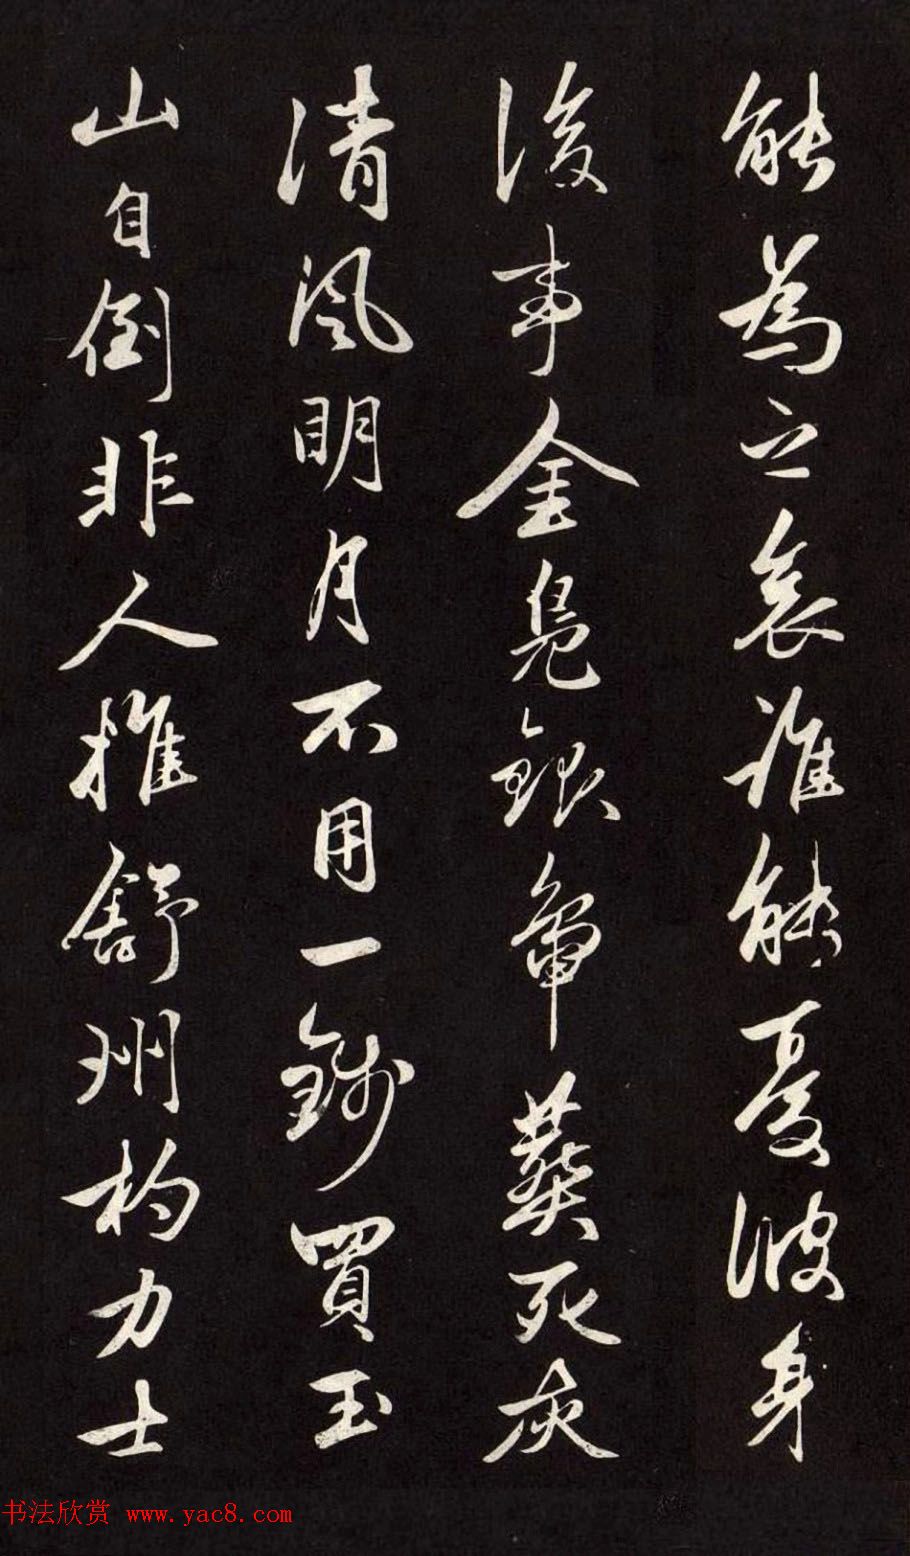 能為之哀誰能憂彼身
後事金鳧銀鴨葬死灰
清風明月不用一錢買玉
山自倒非人推舒州杓力士
书法欣赏 www.yac8.com